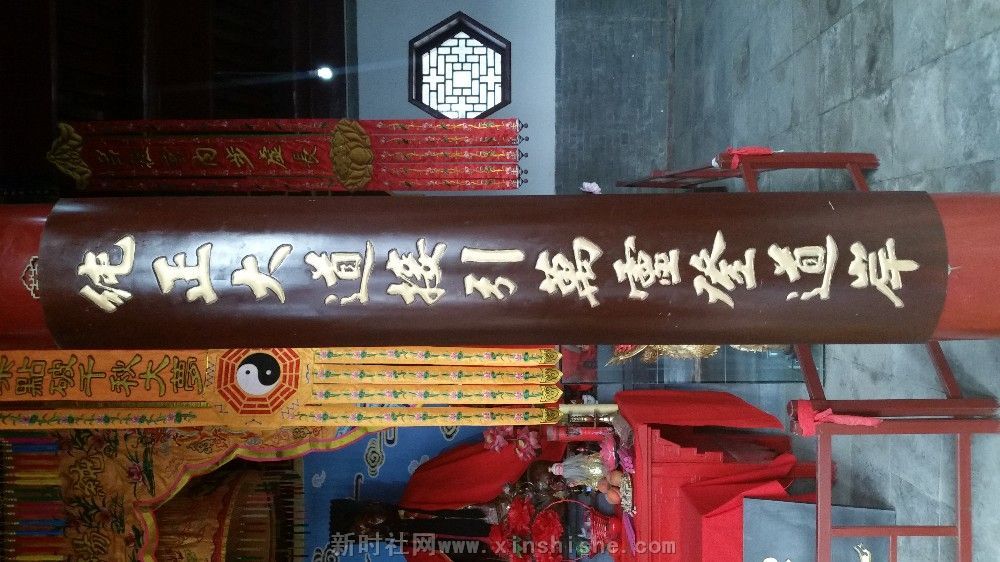 純正大道接引萬靈登道岸
點破千秋大夢
新时社网www.xinshishe.com